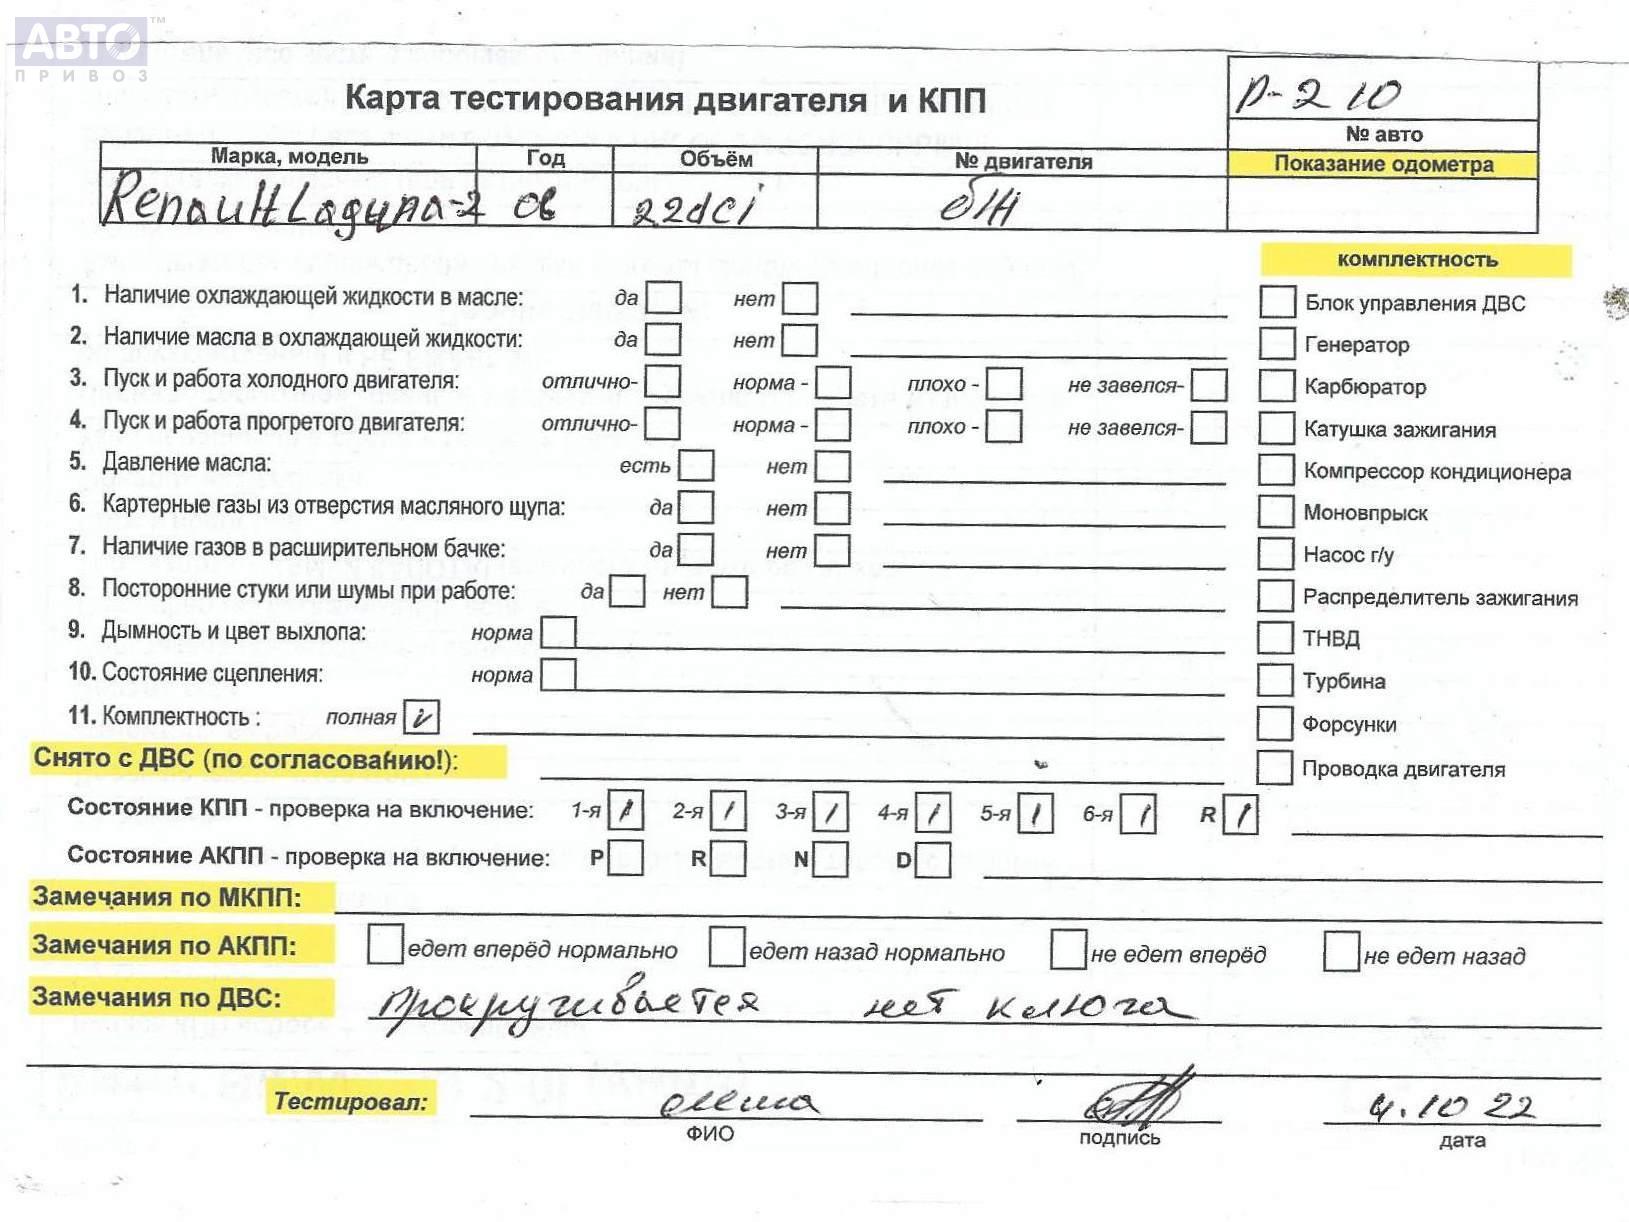 АВТО™
ПРИВОЗ
Р-210
Карта тестирования двигателя и КПП
№ авто
Марка, модель Год Объём № двигателя Показание одометра
Renault Laguna-2 06 22dci б/н
комплектность
1. Наличие охлаждающей жидкости в масле: да нет Блок управления ДВС
2. Наличие масла в охлаждающей жидкости: да нет Генератор
3. Пуск и работа холодного двигателя: отлично- норма - плохо - не завелся- Карбюратор
4. Пуск и работа прогретого двигателя: отлично- норма - плохо - не завелся- Катушка зажигания
5. Давление масла: есть нет Компрессор кондиционера
6. Картерные газы из отверстия масляного щупа: да нет Моновпрыск
7. Наличие газов в расширительном бачке: да нет Насос г/у
8. Посторонние стуки или шумы при работе: да нет Распределитель зажигания
9. Дымность и цвет выхлопа: норма ТНВД
10. Состояние сцепления: норма Турбина
11. Комплектность : полная v Форсунки
Снято с ДВС (по согласованию!): Проводка двигателя
Состояние КПП - проверка на включение: 1-я / 2-я / 3-я / 4-я / 5-я / 6-я / R /
Состояние АКПП - проверка на включение: P R N D
Замечания по МКПП:
Замечания по АКПП: едет вперёд нормально едет назад нормально не едет вперёд не едет назад
Замечания по ДВС: прокручивается нет ключа
Тестировал: 4.10 22
ФИО подпись дата